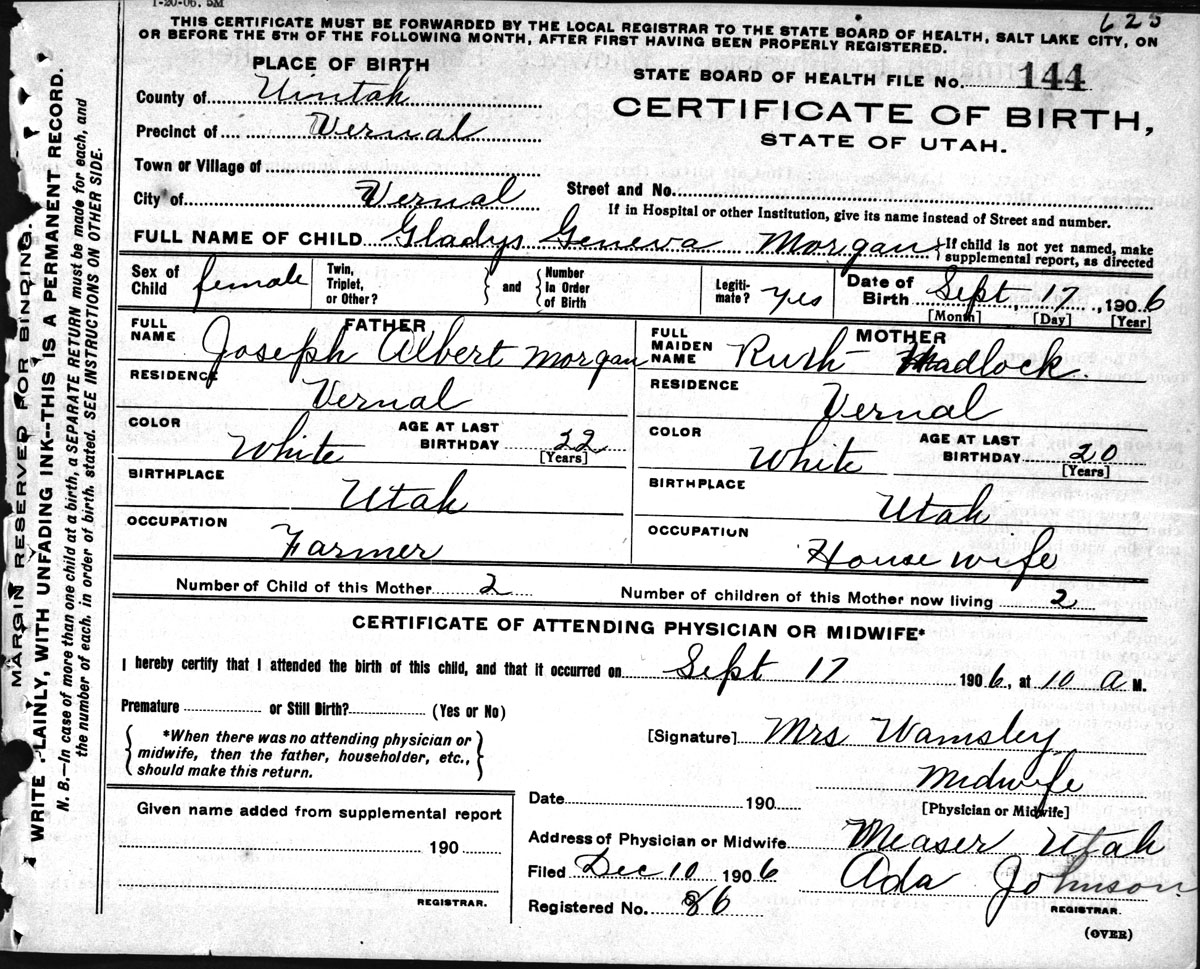 1-20-06. 5M
625
THIS CERTIFICATE MUST BE FORWARDED BY THE LOCAL REGISTRAR TO THE STATE BOARD OF HEALTH, SALT LAKE CITY, ON
OR BEFORE THE 5TH OF THE FOLLOWING MONTH, AFTER FIRST HAVING BEEN PROPERLY REGISTERED.
PLACE OF BIRTH
STATE BOARD OF HEALTH FILE No. 144
County of Uintah
CERTIFICATE OF BIRTH,
Precinct of Vernal
STATE OF UTAH.
Town or Village of
City of Vernal
Street and No.
If in Hospital or other Institution, give its name instead of Street and number.
FULL NAME OF CHILD Gladys Geneva Morgan
{If child is not yet named, make
supplemental report, as directed
Sex of Child female
Twin, Triplet, or Other?
} and {
Number In Order of Birth
Legiti-mate? yes
Date of Birth Sept. 17, 1906
[Month] [Day] [Year]
FATHER
FULL NAME Joseph Albert Morgan
MOTHER
FULL MAIDEN NAME Ruth Hadlock.
RESIDENCE Vernal
RESIDENCE Vernal
COLOR White
AGE AT LAST BIRTHDAY 22
[Years]
COLOR White
AGE AT LAST BIRTHDAY 20
[Years]
BIRTHPLACE Utah
BIRTHPLACE Utah
OCCUPATION Farmer
OCCUPATION House wife
Number of Child of this Mother 2
Number of children of this Mother now living 2
CERTIFICATE OF ATTENDING PHYSICIAN OR MIDWIFE*
I hereby certify that I attended the birth of this child, and that it occurred on Sept 17 1906, at 10 a M.
Premature or Still Birth? (Yes or No)
*When there was no attending physician or
midwife, then the father, householder, etc.,
should make this return.
[Signature] Mrs Wamsley
Midwife
Date 190
[Physician or Midwife]
Given name added from supplemental report
190
REGISTRAR.
Address of Physician or Midwife Measer Utah
Filed Dec 10 1906 Ada Johnson
Registered No. 86
REGISTRAR.
(OVER)
MARGIN RESERVED FOR BINDING.
WRITE PLAINLY, WITH UNFADING INK--THIS IS A PERMANENT RECORD.
N. B.—In case of more than one child at a birth, a SEPARATE RETURN must be made for each, and
the number of each, in order of birth, stated. SEE INSTRUCTIONS ON OTHER SIDE.